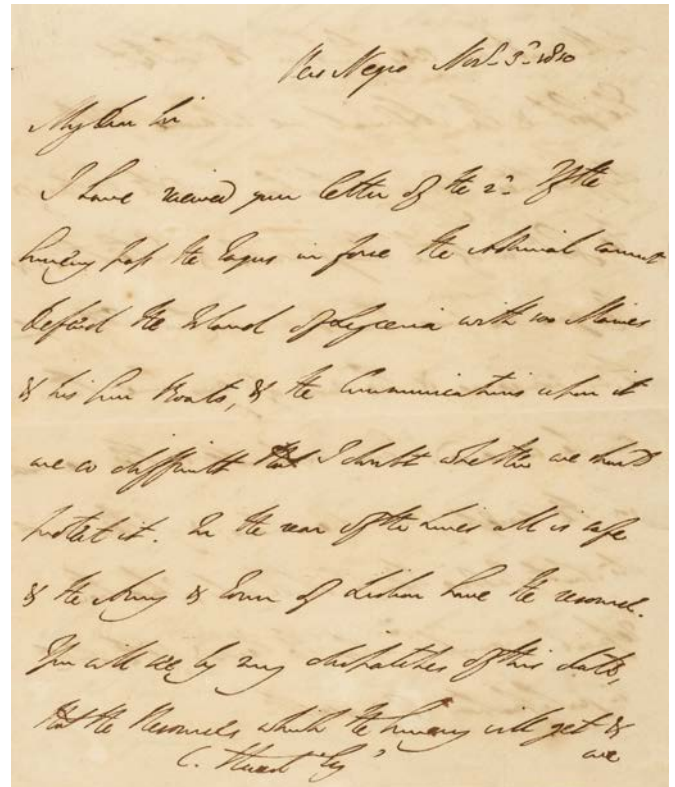 Pero Negro Nov. 3d. 1810
My Dear Sir
I have received your letter of the 2d. If the
Enemy pass the Tagus in force the Admiral cannot
defend the Island of Lyceria with 100 Marines
& his Gun Boats, & the Communications upon it
are so difficult that I doubt whether we should
protect it. In the rear of the Lines all is safe
& the Army & Town of Lisbon have the resource.
You will see by my dispatches of this date,
that the Resources which the Enemy will get &
are
C. Stuart Esqr